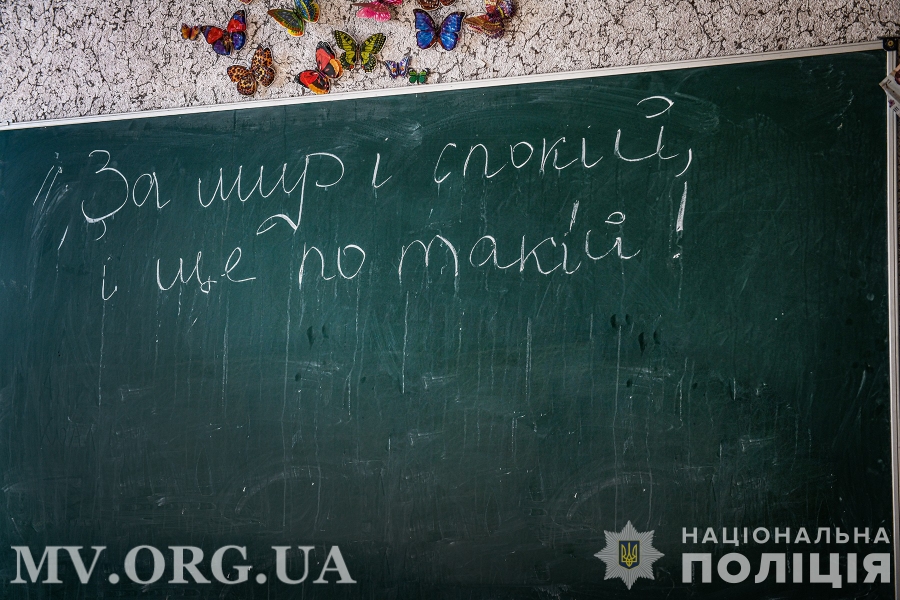 "За мир і спокій,
і ще по такій!
MV.ORG.UA
НАЦІОНАЛЬНА
ПОЛІЦІЯ